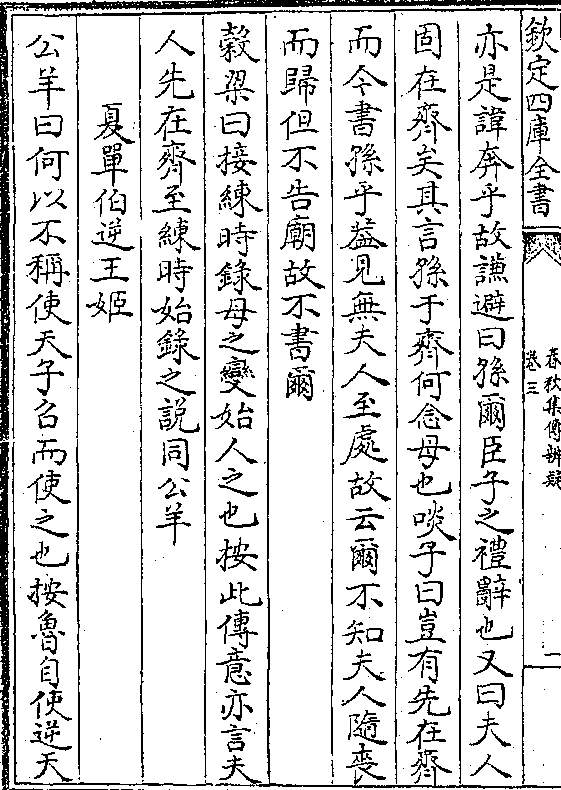 欽定四庫全書
春秋集傳辨疑
卷三
二
亦是諱奔乎故謙避曰孫爾臣子之禮辭也又曰夫人
固在齊矣其言孫于齊何念母也啖子曰豈有先在齊
而今書孫乎葢見無夫人至處故云爾不知夫人隨喪
而歸但不告廟故不書爾
糓梁曰接練時錄母之變始人之也按此傳意亦言夫
人先在齊至練時始錄之説同公羊
夏單伯逆王姬
公羊曰何以不稱使天子召而使之也按魯自使逆天